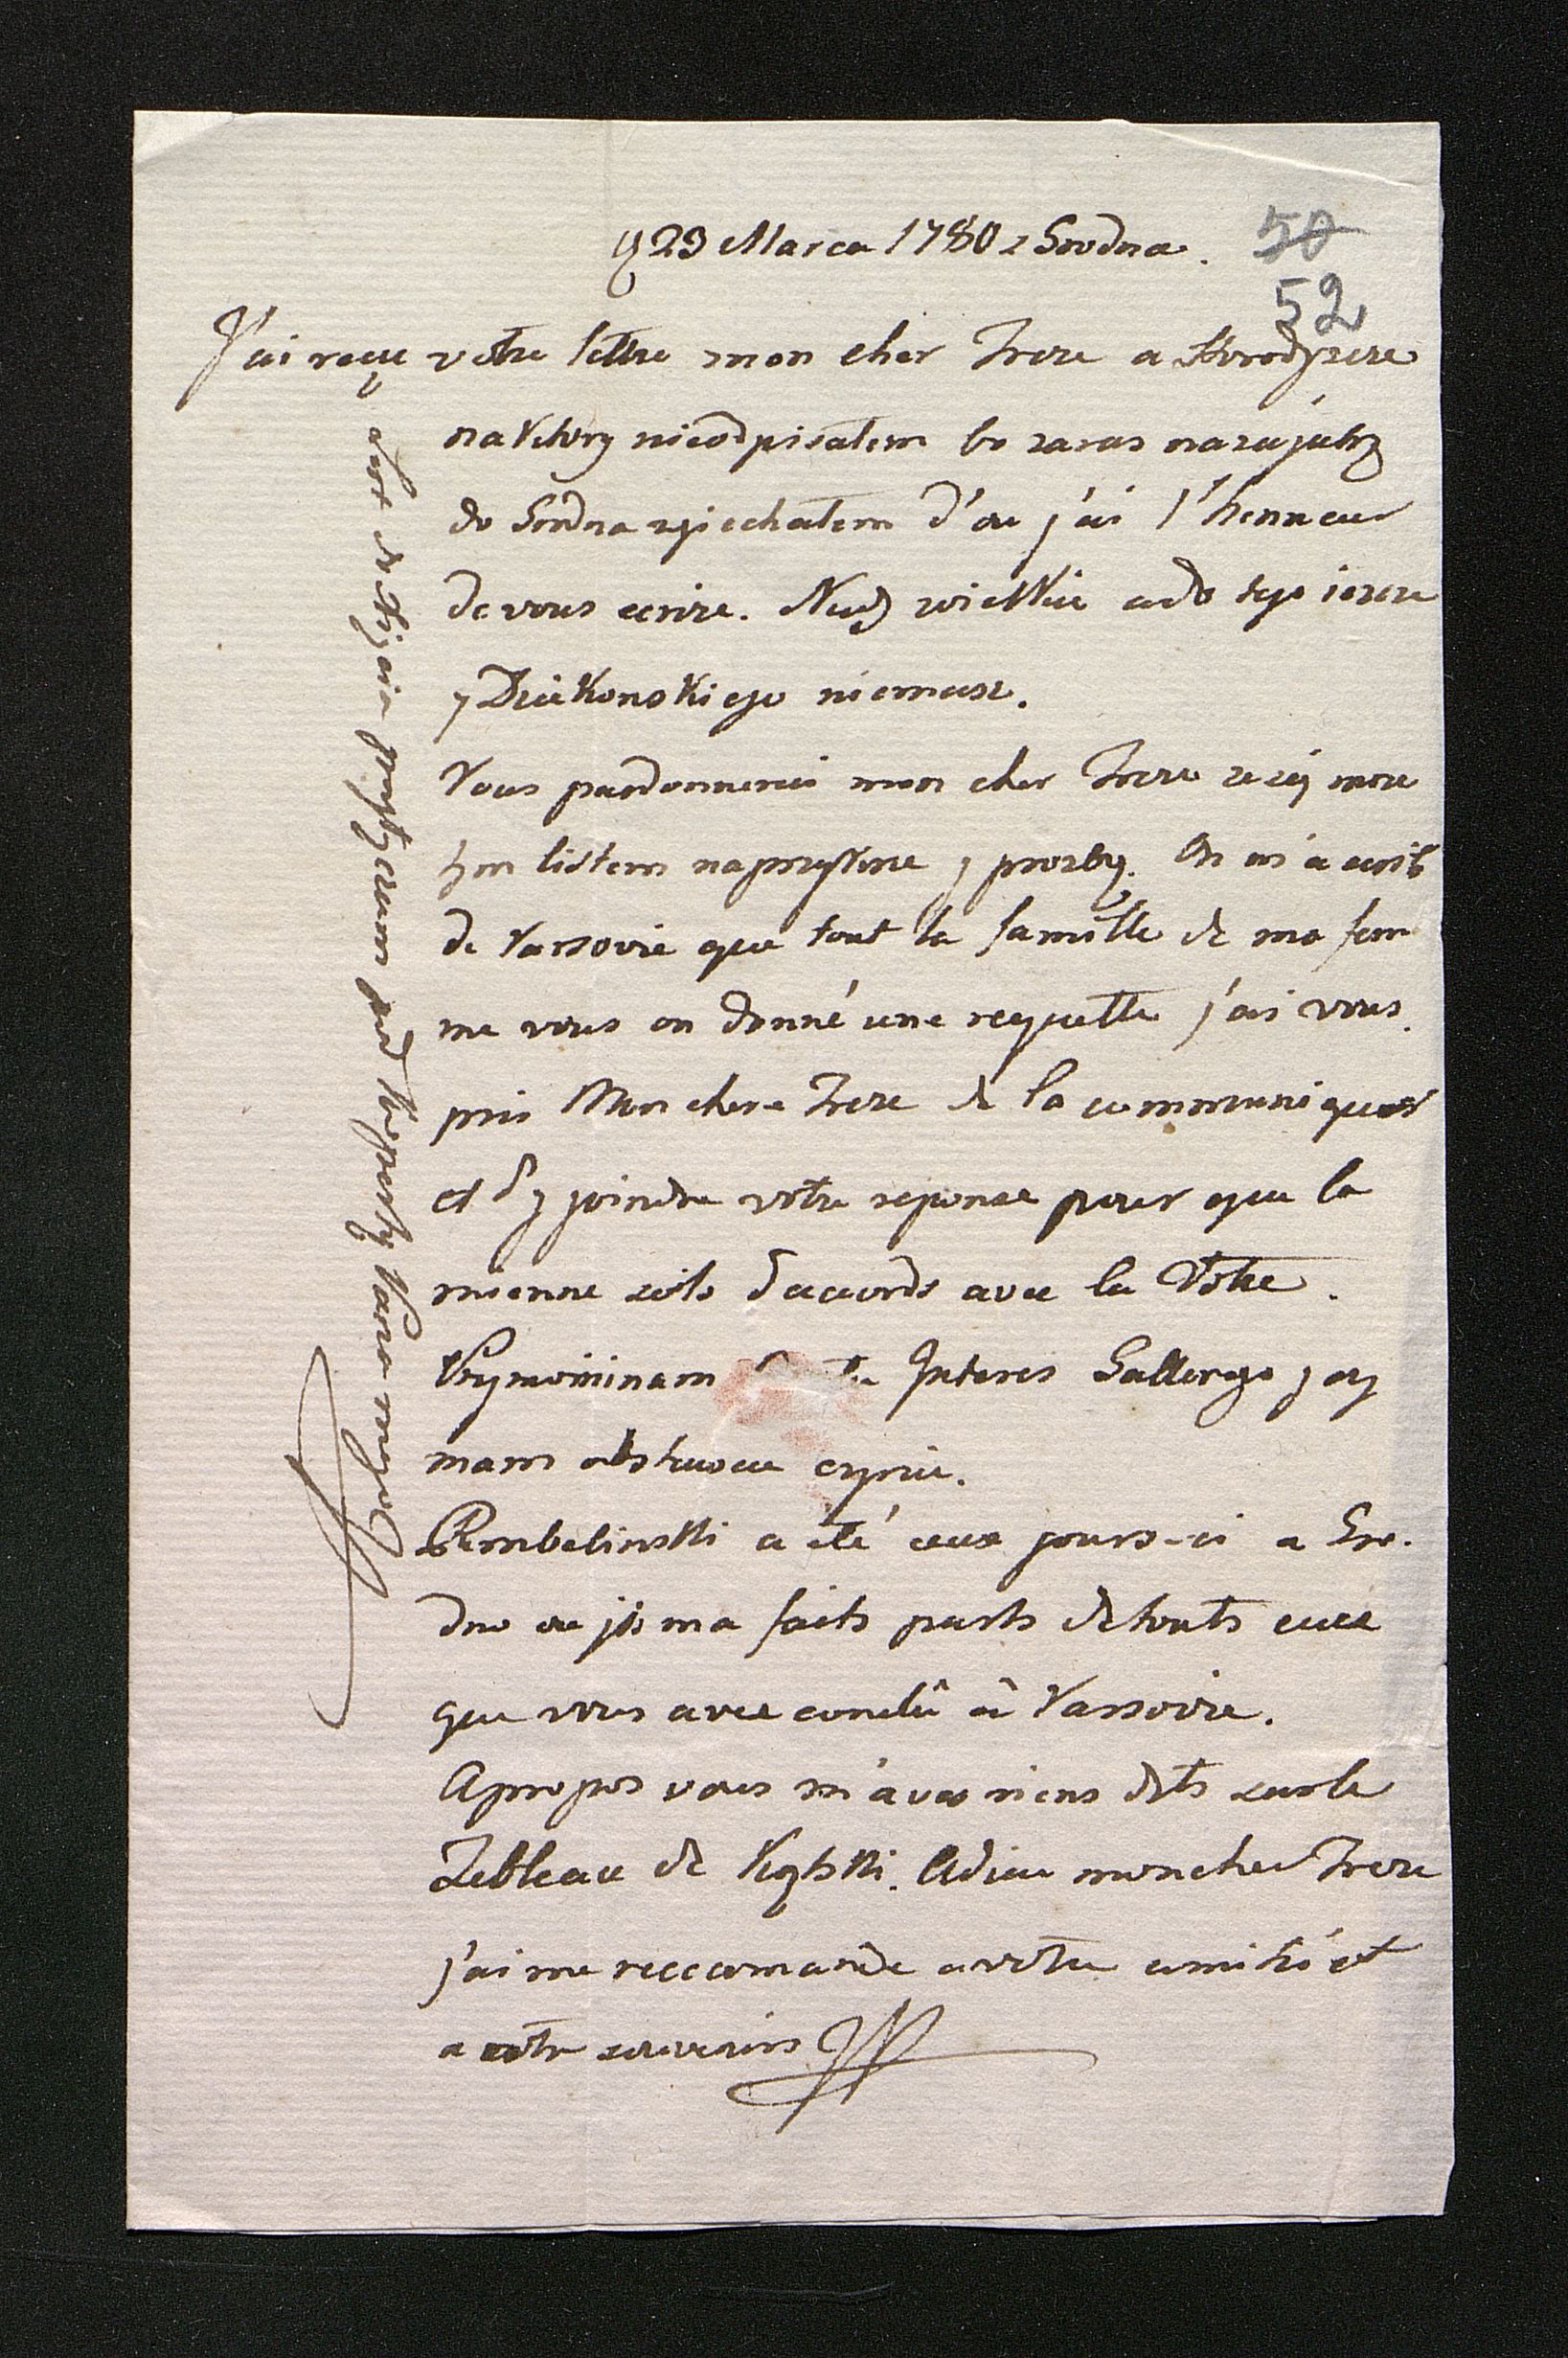 d 23 Marca 1780 z Grodna.
50
52
J'ai reçu votre lettre mon cher Frere a Horodyszcze
na Ktory nieodpisałem bo zaras nazajutrz
do Grodna zjechałem d'ou j'ai l'honneur
de vous ecrire. Nudy wielkie a do tego ieszcze
y Dziekonskiego niemasz.
Vous pardonnerai mon cher Frere ze się moie
tym listem naprzykrze y prozby. On m'a ecrit
de Varsovie que tout la famille de ma fem
me vous on donné une requette j'ai vous
pris Mon chere Frere de la communiquer
et d'y joindre votre reponse pour que la
mienne soits d'accords avec la Votre.
Przypominam Interes Gallerego y czy
mam czynic.
Rembelinski a eté ceux jours-ci a Gro.
dno ou ji ma faits parts de touts ceux
que vous avez conclû â Varsovie.
Apropos vous m'avez riens dits sur le
Tableau de Kętski. Adieu mon cher Frere
j'ai me reccomande a votre amitié et
a votre souvenirs
alors de przytrzymam pod Expedityi